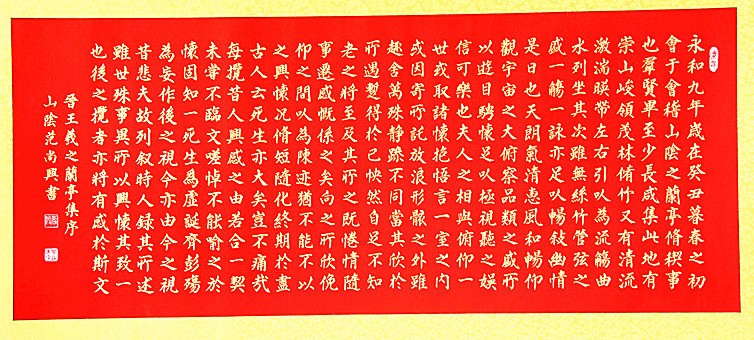 永和九年歲在癸丑暮春之初
會于會稽山陰之蘭亭脩稧事
也羣賢畢至少長咸集此地有
崇山峻領茂林脩竹又有清流
激湍暎帶左右引以為流觴曲
水列坐其次雖無絲竹管弦之
盛一觴一詠亦足以暢敍幽情
是日也天朗氣清惠風和暢仰
觀宇宙之大俯察品類之盛所
以遊目騁懷足以極視聽之娛
信可樂也夫人之相與俯仰一
世或取諸懷抱悟言一室之内
或因寄所託放浪形骸之外雖
趣舍萬殊静躁不同當其欣於
所遇暫得於己怏然自足不知
老之將至及其所之既惓情隨
事遷感慨係之矣向之所欣俛
仰之間以為陳迹猶不能不以
之興懷况脩短隨化終期於盡
古人云死生亦大矣豈不痛哉
每攬昔人興感之由若合一契
未嘗不臨文嗟悼不能喻之於
懷固知一死生為虛誕齊彭殤
為妄作後之視今亦由今之視
昔悲夫故列叙時人録其所述
雖世殊事異所以興懷其致一
也後之攬者亦將有感於斯文
晉王羲之蘭亭集序
山陰范尚興書